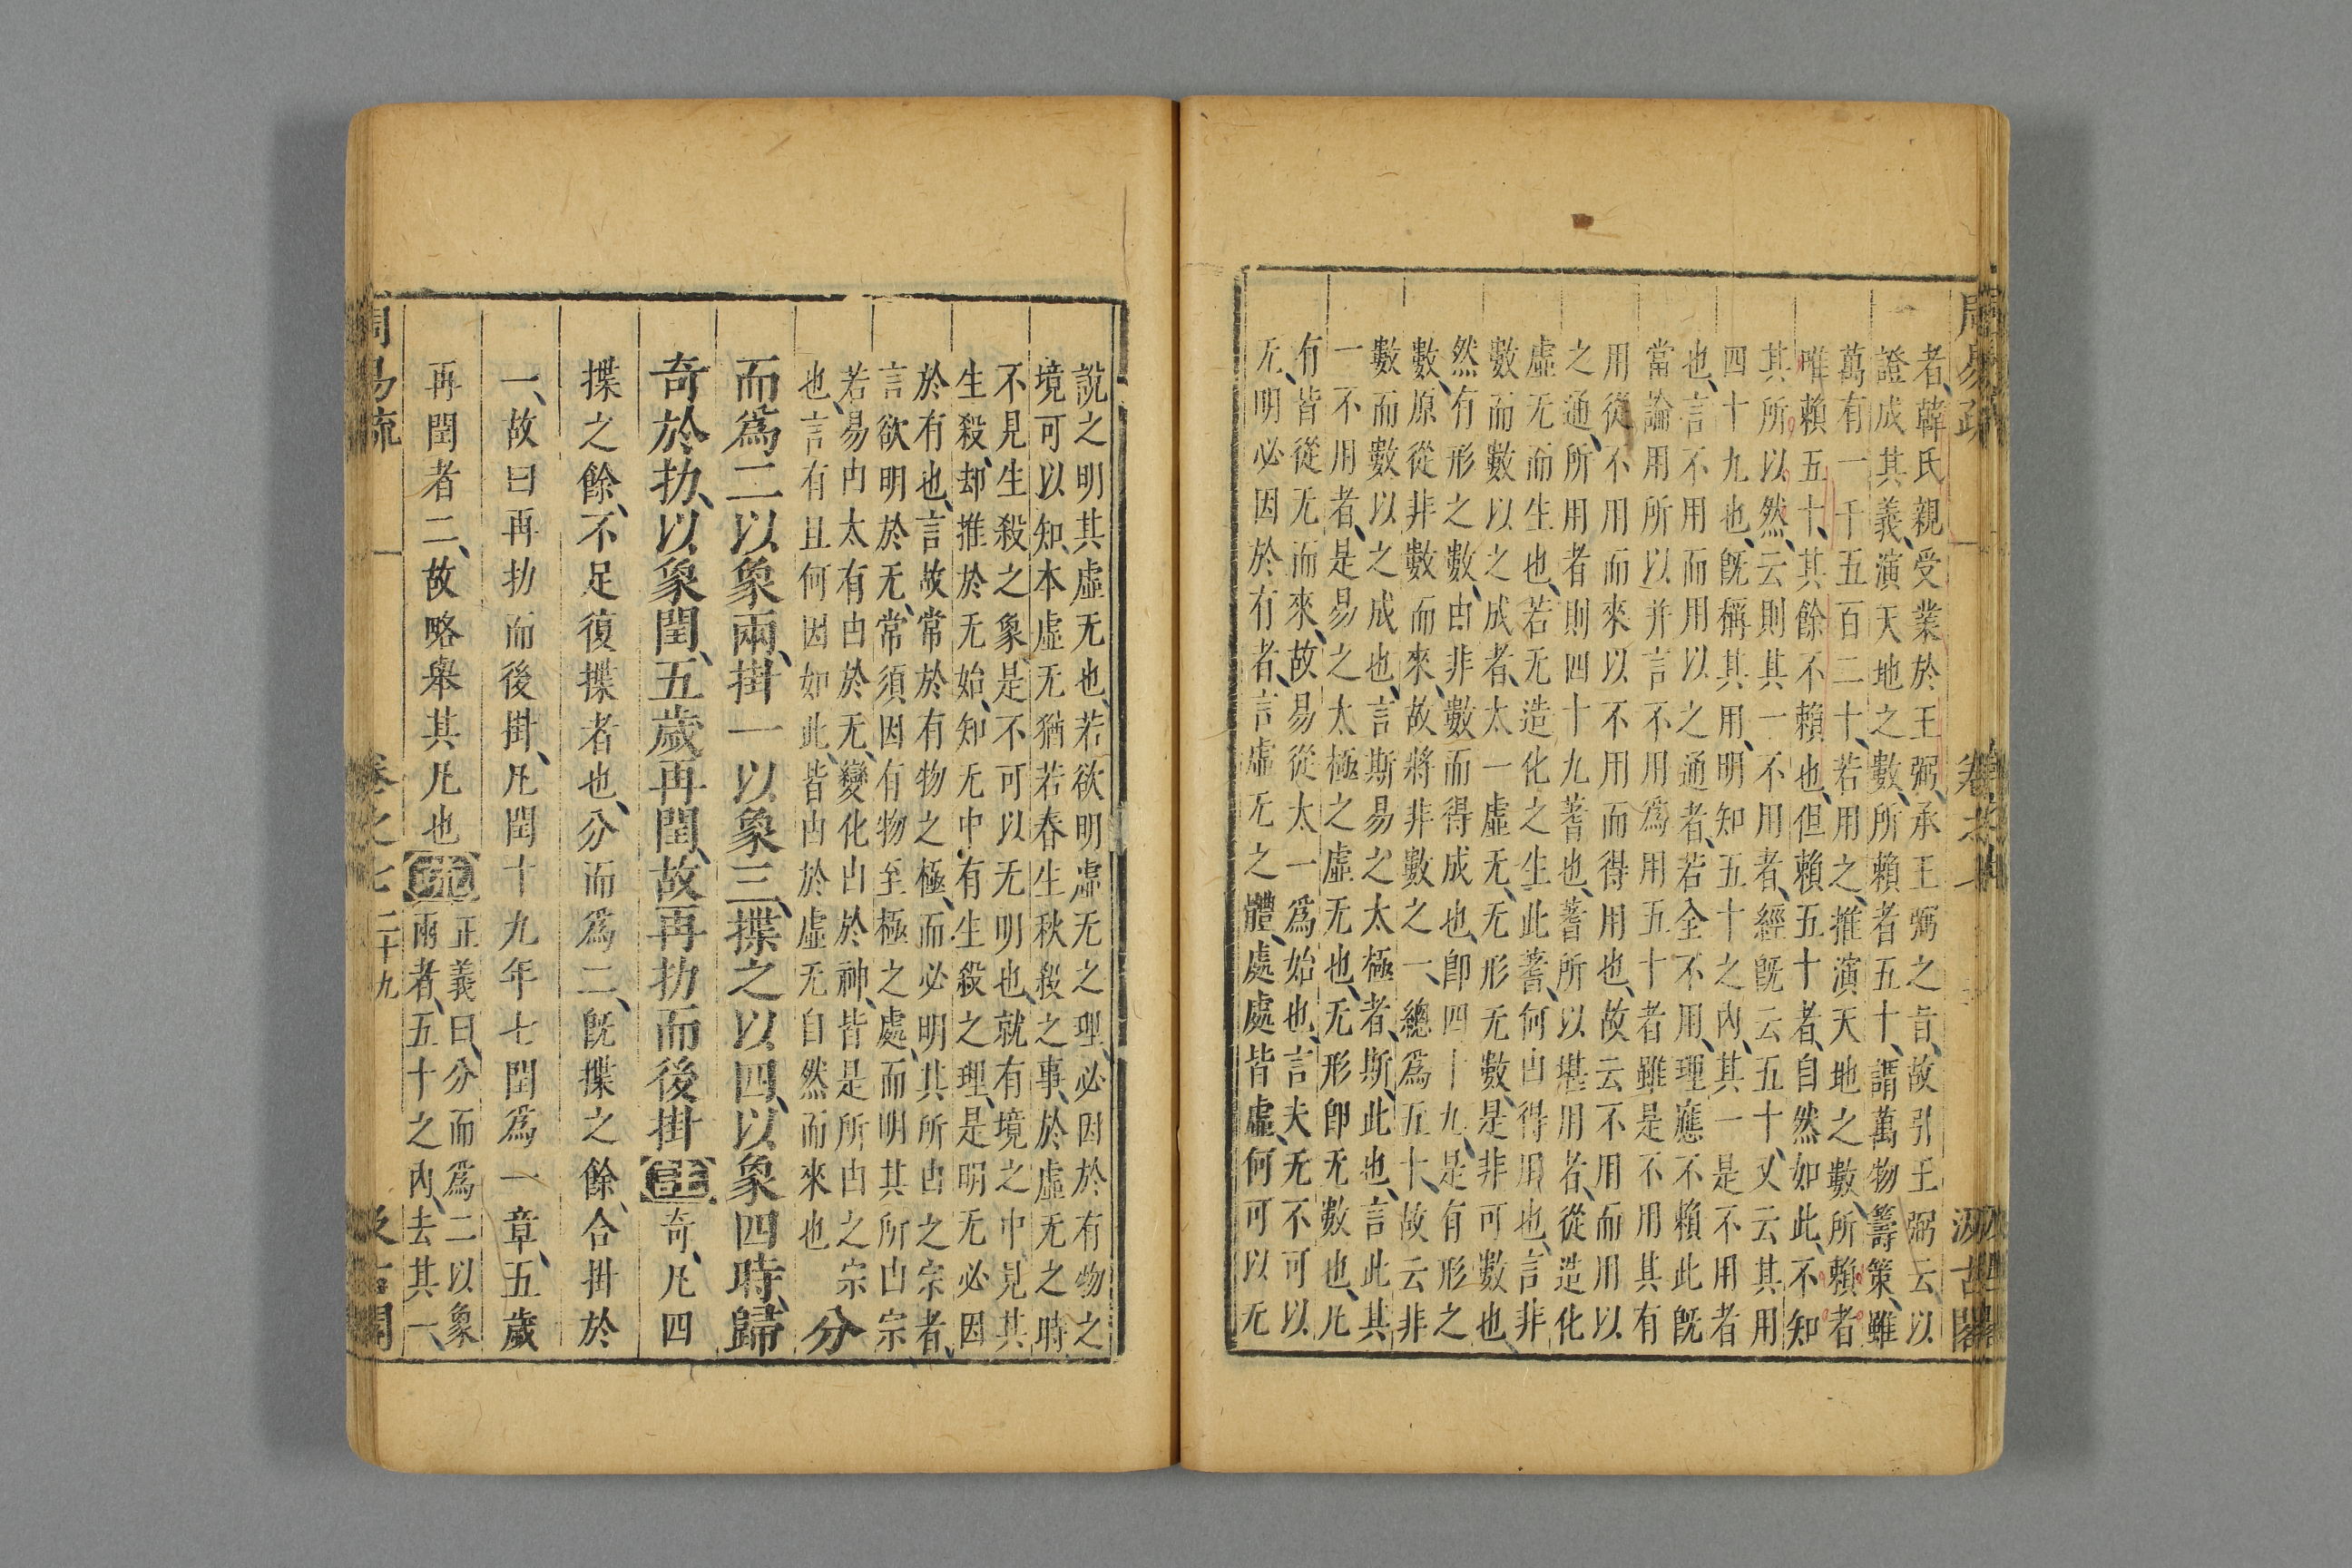 周易疏
汲古閣
者、韓氏親受業於王弼、承王弼之旨、故引王弼云以
證成其義、演天地之數、所賴者五十、謂萬物籌策、雖
萬有一千五百二十、若用之、推演天地之數、所賴者
唯賴五十、其餘不賴也、但賴五十者、自然如此、不知
其所以然、云則其一不用者、經旣云五十、又云其用
四十九也、旣稱其用、明知五十之內、其一是不用者
也、言不用而用以之通者、若全不用、理應不賴此旣
當論用所以并言不用爲用五十者雖是不用其有
用從不用而來以不用而得用也、故云不用而用以
之通、所用者則四十九蓍也、蓍所以堪用者、從造化
虛无而生也、若无造化之生此蓍、何由得用也、言非
數而數以之成者、太一虛无、无形无數、是非可數也
然有形之數、由非數而得成也、卽四十九、是有形之
數、原從非數而來、故將非數之一、總爲五十、故云非
數而數以之成也、言斯易之太極者、斯、此也、言此其
一不用者、是易之太極之虛无也、无形卽无數也、凡
有皆從无而來、故易從太一爲始也、言夫无不可以
无、明必因於有者、言虛无之體、處處皆虛、何可以无
說之明其虛无也、若欲明虛无之理、必因於有物之
境、可以知、本虛无猶若春生秋殺之事、於虛无之時
不見生殺之象、是不可以无明也、就有境之中見其
生殺、却推於无始、知无中有生殺之理、是明无必因
於有也、言故常於有物之極、而必明其所由之宗者、
言欲明於无、常須因有物至極之處、而明其所由宗
若易由太有由於无、變化由於神、皆是所由之宗
也、言有且何因如此、皆由於虛无自然而來也 分
而爲二以象兩、掛一以象三、揲之以四、以象四時、歸
奇於扐、以象閏、五歲再閏、故再扐而後掛 註 奇、凡四
揲之餘、不足復揲者也、分而爲二、旣揲之餘、合掛於
一、故曰再扐而後掛、凡閏十九年七閏爲一章、五歲
再閏者二、故略舉其凡也 疏
正義曰、分而爲二以象
兩者、五十之內、去其一、
周易疏
卷之七
二十九
汲古閣